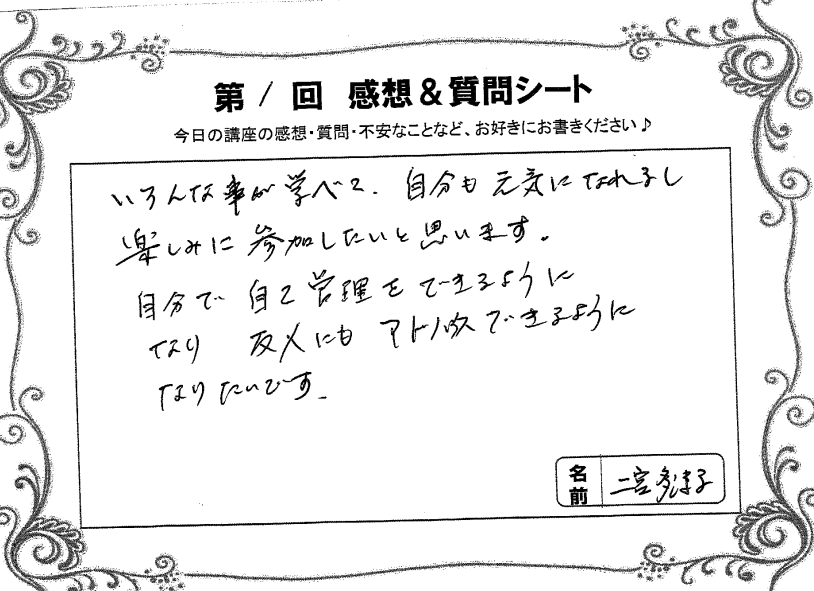 第1回 感想&質問シート
今日の講座の感想・質問・不安なことなど、お好きにお書きください♪
いろんな事が学べて、自分も元気になれるし
楽しみに参加したいと思います。
自分で自己管理をできるように
なり 友人にも アドバイスできるように
なりたいです。
名前 二宮